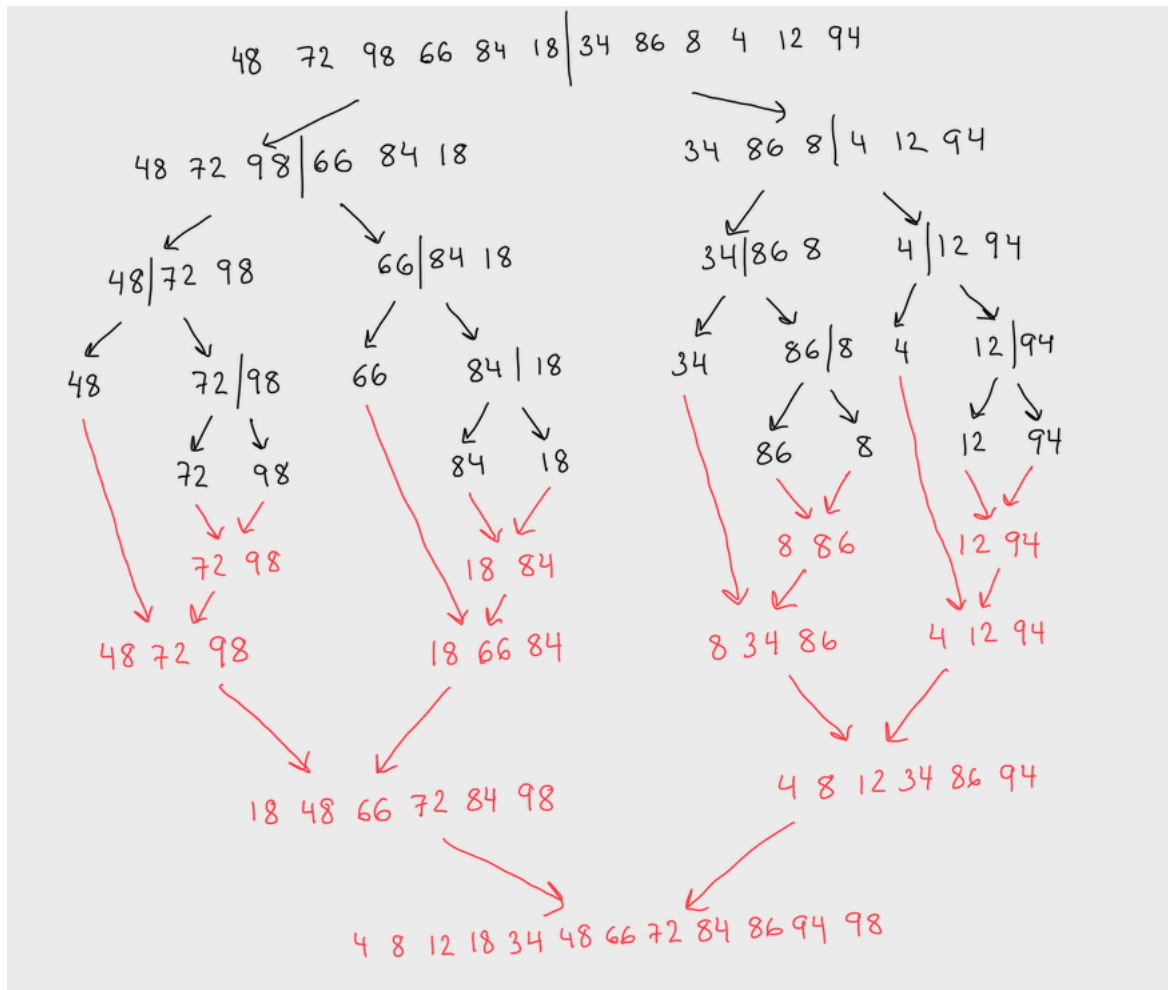 48 72 98 66 84 18|34 86 8 4 12 94
48 72 98|66 84 18 34 86 8|4 12 94
48|72 98 66|84 18 34|86 8 4|12 94
48 72|98 66 84|18 34 86|8 4 12|94
72 98 84 18 86 8 12 94
72 98 18 84 8 86 12 94
48 72 98 18 66 84 8 34 86 4 12 94
18 48 66 72 84 98 4 8 12 34 86 94
4 8 12 18 34 48 66 72 84 86 94 98